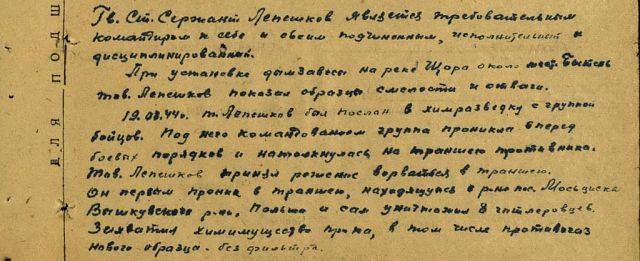 Гв. Ст. Сержант Лепешков является требовательным
командиром к себе и своим подчиненным, исполнительный и
дисциплинированный.
При установке дымзавесы на реке Щара около мест. Бытень
тов. Лепешков показал образцы смелости и отваги.
19.08.44г. т. Лепешков был послан в химразведку с группой
бойцов. Под его командованием группа проникла вперед
боевых порядков и натолкнулась на траншею противника.
Тов. Лепешков принял решение ворваться в траншею.
Он первым проник в траншею, находящуюся в р-не
Вышкувского р-на, Польша и сам уничтожил 8 гитлеровцев.
Захватил химимущество пр-ка, в том числе противогаз
нового образца - без фильтра.
ДЛЯ ПОДШ